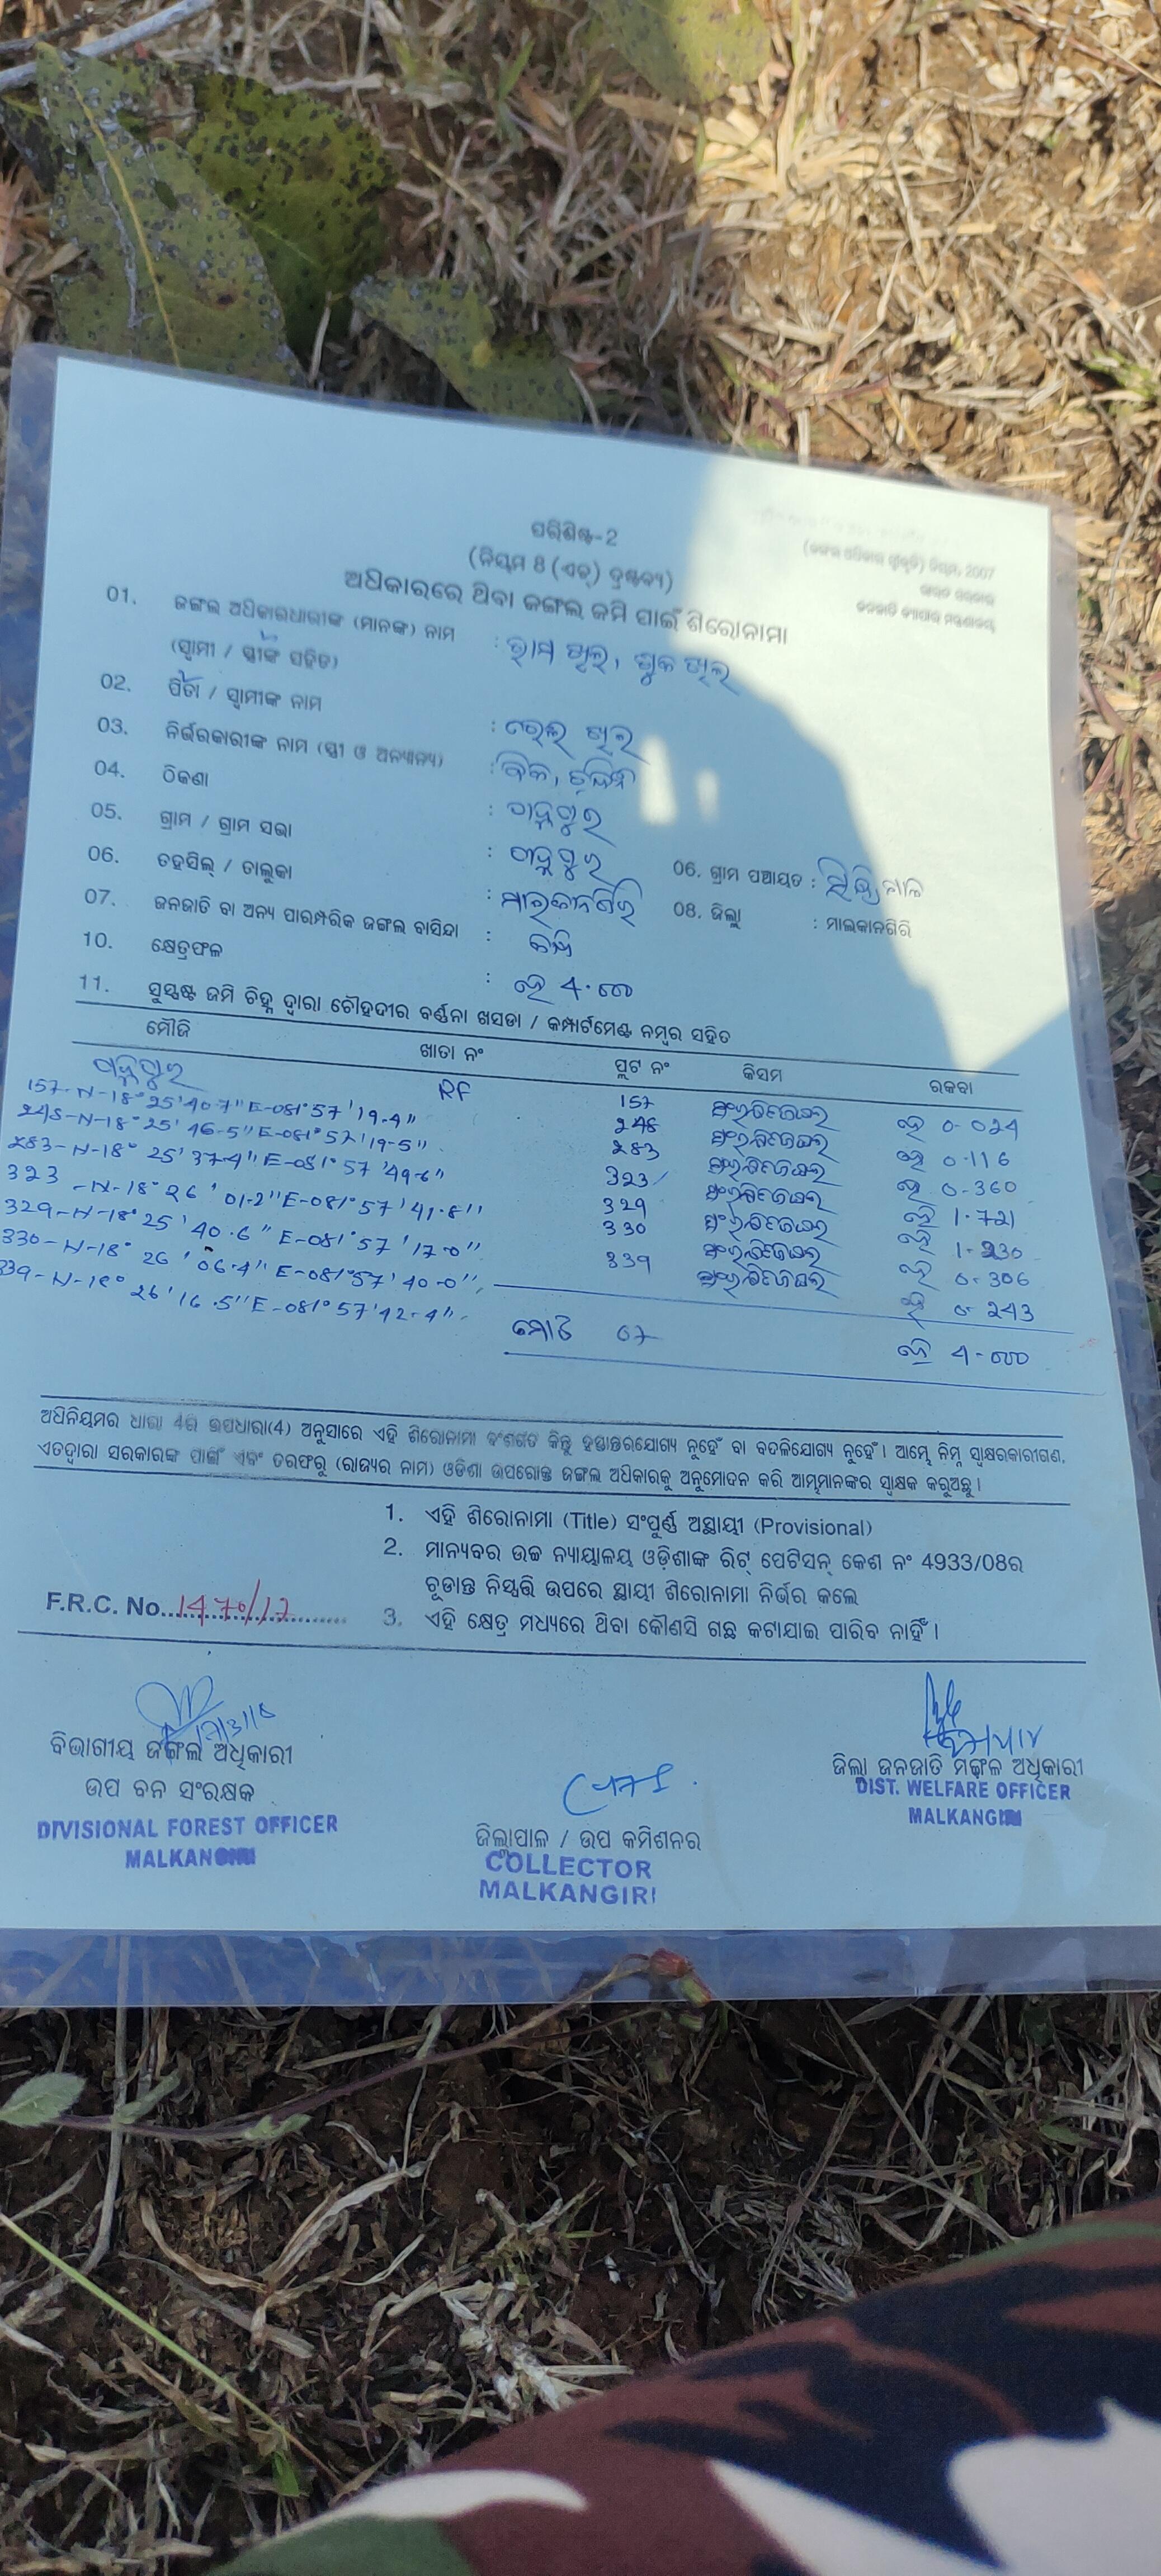 ପରିଶିଷ୍ଟ-2
(ନିୟମ 8 (ଏଚ୍) ଦ୍ରଷ୍ଟବ୍ୟ)
(ଜଙ୍ଗଲ ଅଧିକାର ସ୍ୱୀକୃତି) ନିୟମ, 2007
ଭାରତ ସରକାର
ଜନଜାତି ବ୍ୟାପାର ମନ୍ତ୍ରଣାଳୟ
ଅଧିକାରରେ ଥିବା ଜଙ୍ଗଲ ଜମି ପାଇଁ ଶିରୋନାମା
01. ଜଙ୍ଗଲ ଅଧିକାରଧାରୀଙ୍କ (ମାନଙ୍କ) ନାମ
(ସ୍ୱାମୀ / ସ୍ତ୍ରୀଙ୍କ ସହିତ) :
02. ପିତା / ସ୍ୱାମୀଙ୍କ ନାମ :
03. ନିର୍ଭରକାରୀଙ୍କ ନାମ (ସ୍ତ୍ରୀ ଓ ଅନ୍ୟାନ୍ୟ) :
04. ଠିକଣା :
05. ଗ୍ରାମ / ଗ୍ରାମ ସଭା : 06. ଗ୍ରାମ ପଞ୍ଚାୟତ :
06. ତହସିଲ୍ / ତାଲୁକା : ମାଲକାନଗିରି 08. ଜିଲ୍ଲା : ମାଲକାନଗିରି
07. ଜନଜାତି ବା ଅନ୍ୟ ପାରମ୍ପରିକ ଜଙ୍ଗଲ ବାସିନ୍ଦା :
10. କ୍ଷେତ୍ରଫଳ : ହେ 4.00
11. ସୁସ୍ପଷ୍ଟ ଜମି ଚିହ୍ନ ଦ୍ୱାରା ଚୌହଦୀର ବର୍ଣ୍ଣନା ଖସଡା / କମ୍ପାର୍ଟମେଣ୍ଟ ନମ୍ବର ସହିତ
ମୌଜି ଖାତା ନଂ ପ୍ଲଟ ନଂ କିସମ ରକବା
RF
157-N-18°25'40.7"E-081°57'19.4" 157 ହେ 0.024
248-N-18°25'46.5"E-081°57'19.5" 248 ହେ 0.116
283-N-18°25'37.4"E-081°57'49.6" 283 ହେ 0.360
323-N-18°26'01.2"E-081°57'41.8" 323 ହେ 1.721
329-N-18°25'40.6"E-081°57'17.0" 329 ହେ 1.230
330-N-18°26'06.4"E-081°57'40.0" 330 ହେ 0.306
339-N-18°26'16.5"E-081°57'42.4" 339 ହେ 0.243
ମୋଟ 07 ହେ 4.00
ଅଧିନିୟମର ଧାରା 4ର ଉପଧାରା(4) ଅନୁସାରେ ଏହି ଶିରୋନାମା ବଂଶଗତ କିନ୍ତୁ ହସ୍ତାନ୍ତରଯୋଗ୍ୟ ନୁହେଁ ବା ବଦଳିଯୋଗ୍ୟ ନୁହେଁ। ଆମ୍ଭେ ନିମ୍ନ ସ୍ୱାକ୍ଷରକାରୀଗଣ,
ଏତଦ୍ୱାରା ସରକାରଙ୍କ ପାଇଁ ଏବଂ ତରଫରୁ (ରାଜ୍ୟର ନାମ) ଓଡିଶା ଉପରୋକ୍ତ ଜଙ୍ଗଲ ଅଧିକାରକୁ ଅନୁମୋଦନ କରି ଆମ୍ଭମାନଙ୍କର ସ୍ୱାକ୍ଷକ କରୁଅଛୁ।
1. ଏହି ଶିରୋନାମା (Title) ସଂପୁର୍ଣ୍ଣ ଅସ୍ଥାୟୀ (Provisional)
2. ମାନ୍ୟବର ଉଚ୍ଚ ନ୍ୟାୟାଳୟ ଓଡ଼ିଶାଙ୍କ ରିଟ୍ ପେଟିସନ୍ କେଶ ନଂ 4933/08ର
ଚୂଡାନ୍ତ ନିସ୍ପତ୍ତି ଉପରେ ସ୍ଥାୟୀ ଶିରୋନାମା ନିର୍ଭର କଲେ
F.R.C. No. 1470/12
3. ଏହି କ୍ଷେତ୍ର ମଧ୍ୟରେ ଥିବା କୌଣସି ଗଛ କଟାଯାଇ ପାରିବ ନାହିଁ।
ବିଭାଗୀୟ ଜଙ୍ଗଲ ଅଧିକାରୀ
ଉପ ବନ ସଂରକ୍ଷକ
DIVISIONAL FOREST OFFICER
MALKANGIRI
ଜିଲ୍ଲାପାଳ / ଉପ କମିଶନର
COLLECTOR
MALKANGIRI
ଜିଲ୍ଲା ଜନଜାତି ମଙ୍ଗଳ ଅଧିକାରୀ
DIST. WELFARE OFFICER
MALKANGIRI